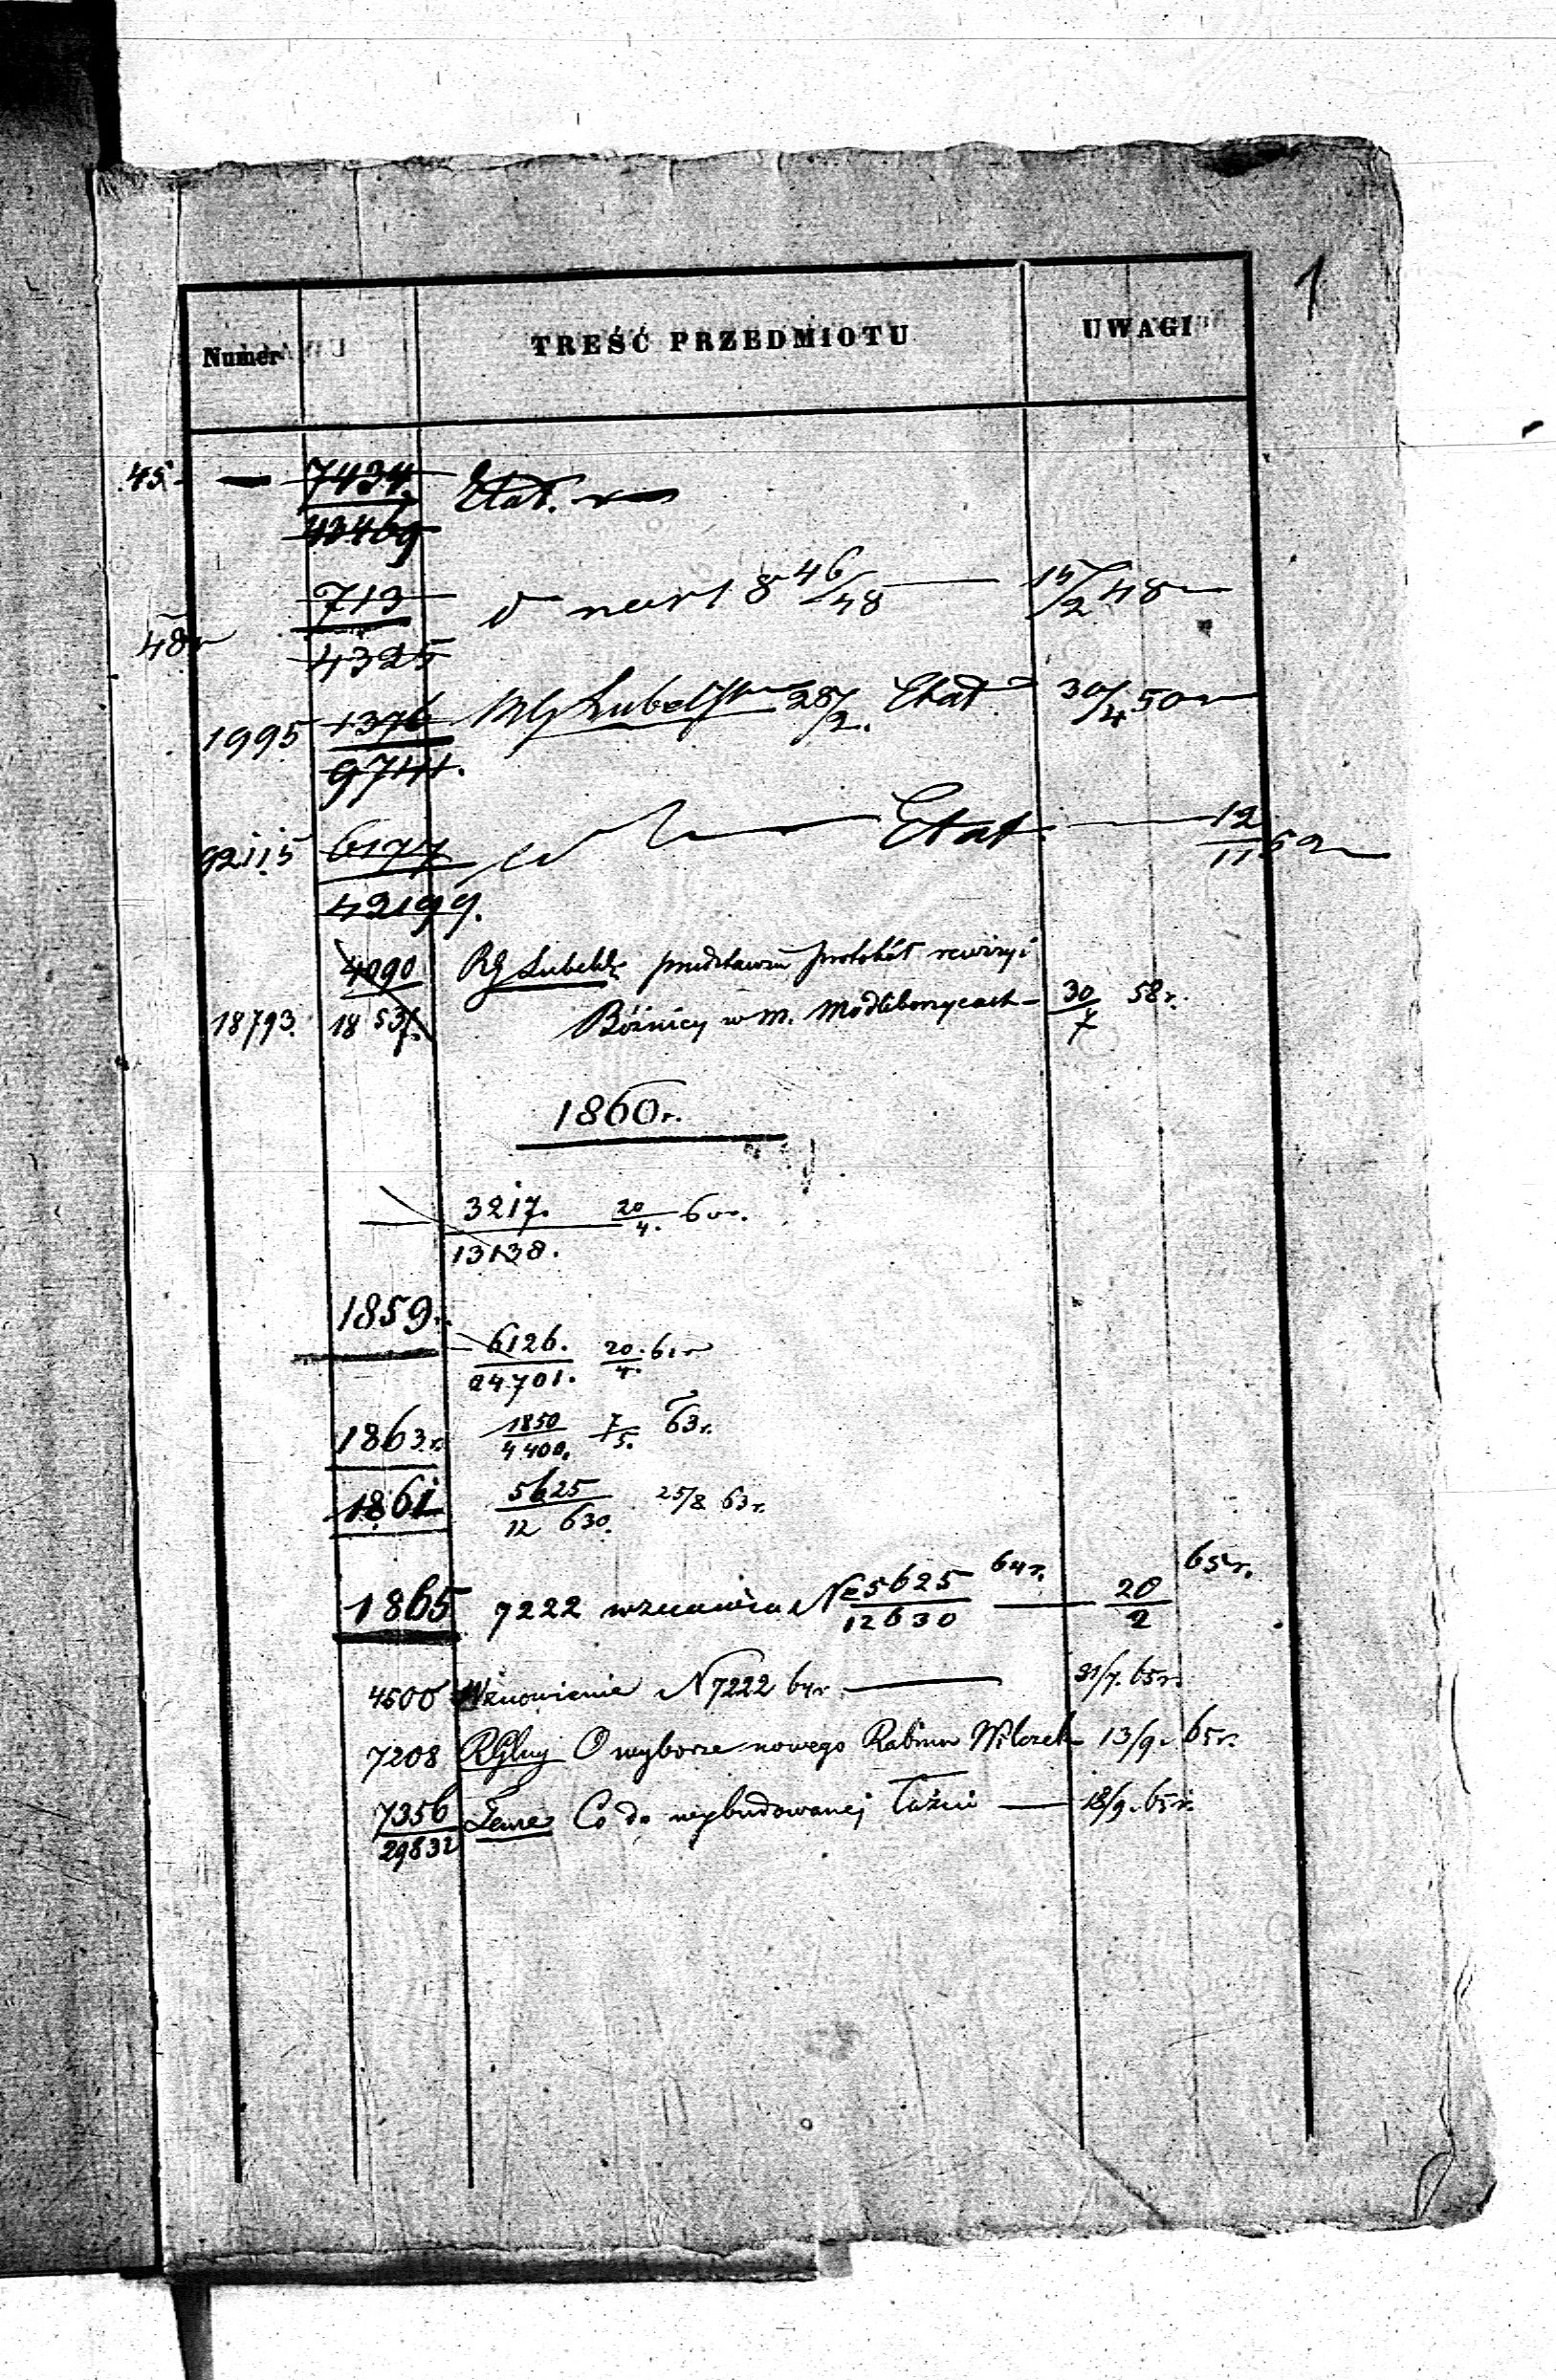 1
Numer TREŚĆ PRZEDMIOTU UWAGI
45 — 7434 Etat.
43469
713 46/48 15/2 48
48r
4325
1995 1376 RG Lubelski 28/2. Etat 30/4 50
9744.
92115 6177 Etat. 12/11 52
42199.
4090 RG Lubelski przedstawia protokół rewizyi
18793. 18537. Bóżnicy w m. Modliborzycach — 30/7 58r.
1860r.
3217. 20/4. 60r.
13138.
1859r.
6126. 20/4. 61r
24701.
1863r. 1850 7/5. 63r.
4400.
1861 5625 25/8 63r.
12630.
1865 7222 wznawia № 5625/12630 64r. — 20/2 65r.
4500 Wznowienie N 7222 64r — 31/7. 65r.
7208 O wyborze nowego Rabina Wilczek 13/9. 65r.
7356 Co do wybudowanej Łaźni — 18/9. 65r.
29832